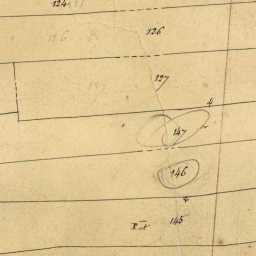 124
126
126
127
127
147
146
145